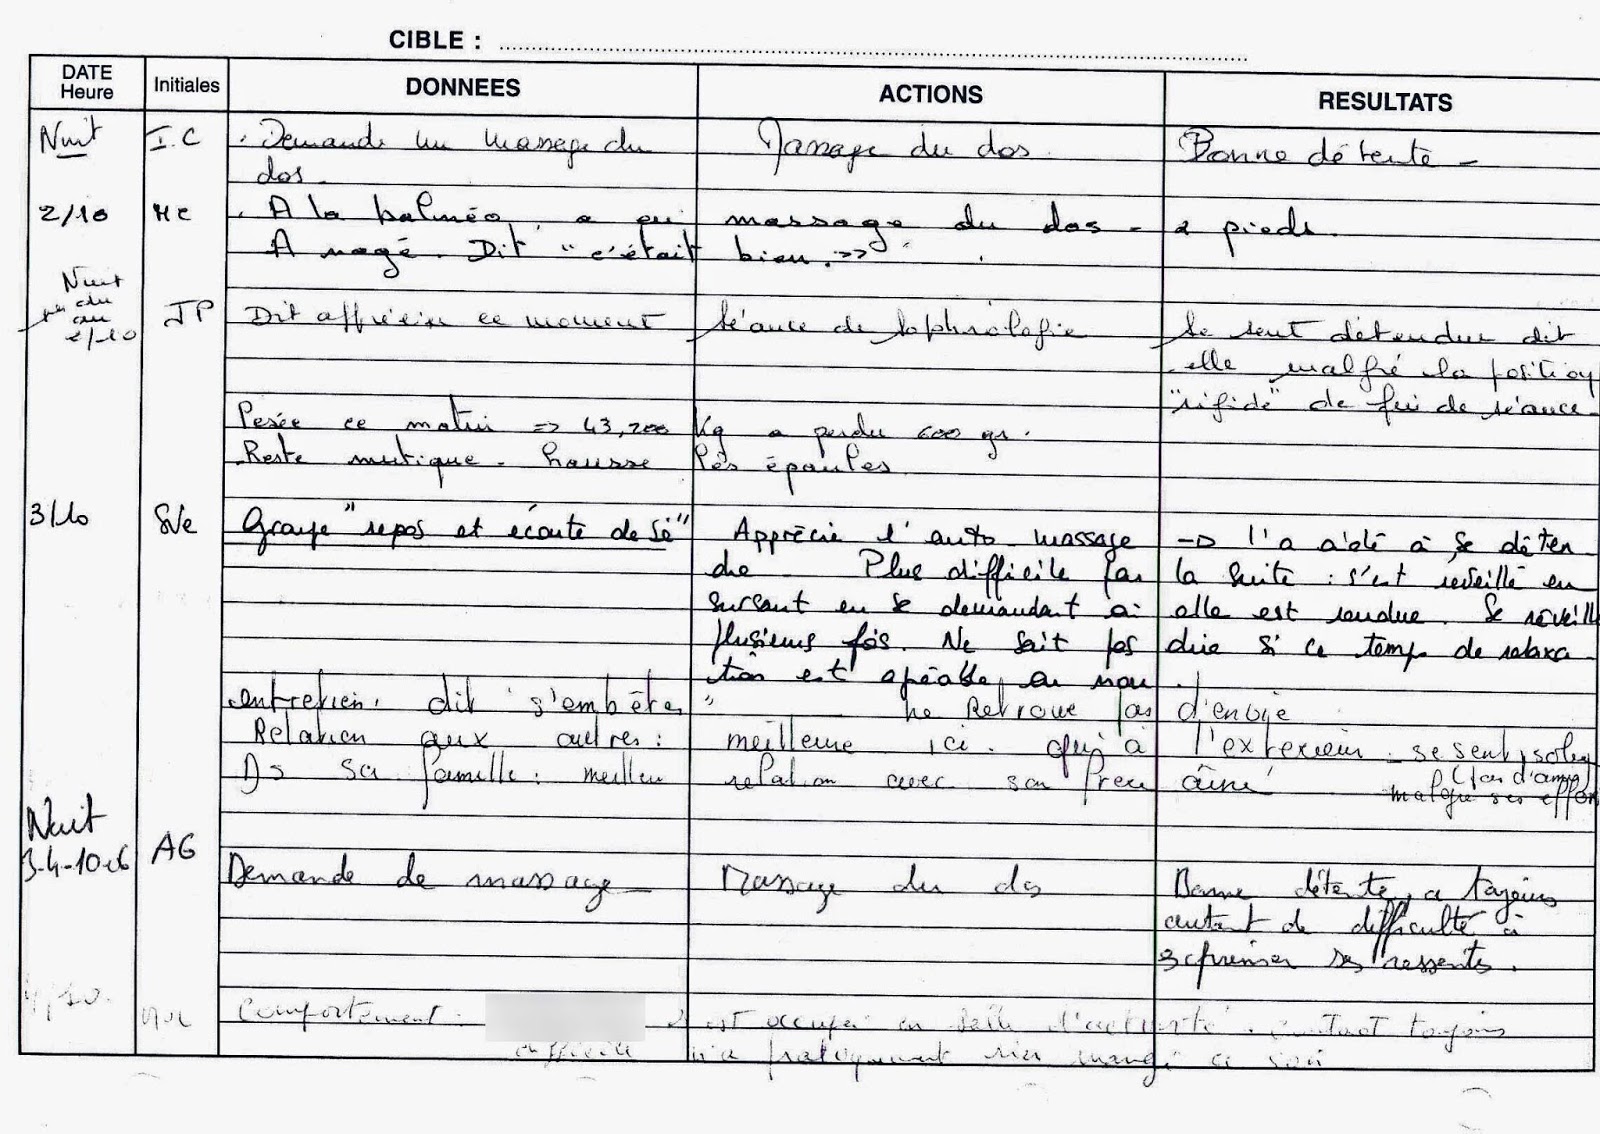 CIBLE :
DATE Heure Initiales DONNEES ACTIONS RESULTATS
Nuit I.C . Demande un massage du Massage du dos. Bonne détente -
dos.
2/10 . A la balnéo, a eu massage du dos - 2 pieds.
A nagé. Dit "c'était bien."
Nuit
du
au
2/10 JP Dit apprécier ce moment séance de sophrologie se sent détendue dit
elle malgré la position
"rigide" de fin de séance.
Pesée ce matin => 43,200 Kg a perdu 600 gr.
Reste mutique. hausse les épaules.
3/10 SVe Groupe "repos et écoute de sé" Apprécie l'auto massage -> l'a aidé à se déten
dre Plus difficile par la suite : s'est réveillé en
sursaut en se demandant où elle est rendue. Se réveille
plusieurs fois. Ne sait pas dire si ce temps de relaxa
tion est agréable ou non.
entretien. dit "s'embêter" ne Retrouve pas d'envie
Relation aux autres : meilleure ici. qu'à l'extérieur - se sent isolée
(pas d'amis)
Ds sa famille : meilleur relation avec son frère aîné malgré ses efforts
Nuit
3-4-10-06 AG
Demande de massage Massage du dos Bonne détente, a toujours
autant de difficulté à
exprimer ses ressentis.
4/10. Comportement : s'est occupée en salle d'activité. contact toujours
difficile n'a pratiquement rien mangé ce soir